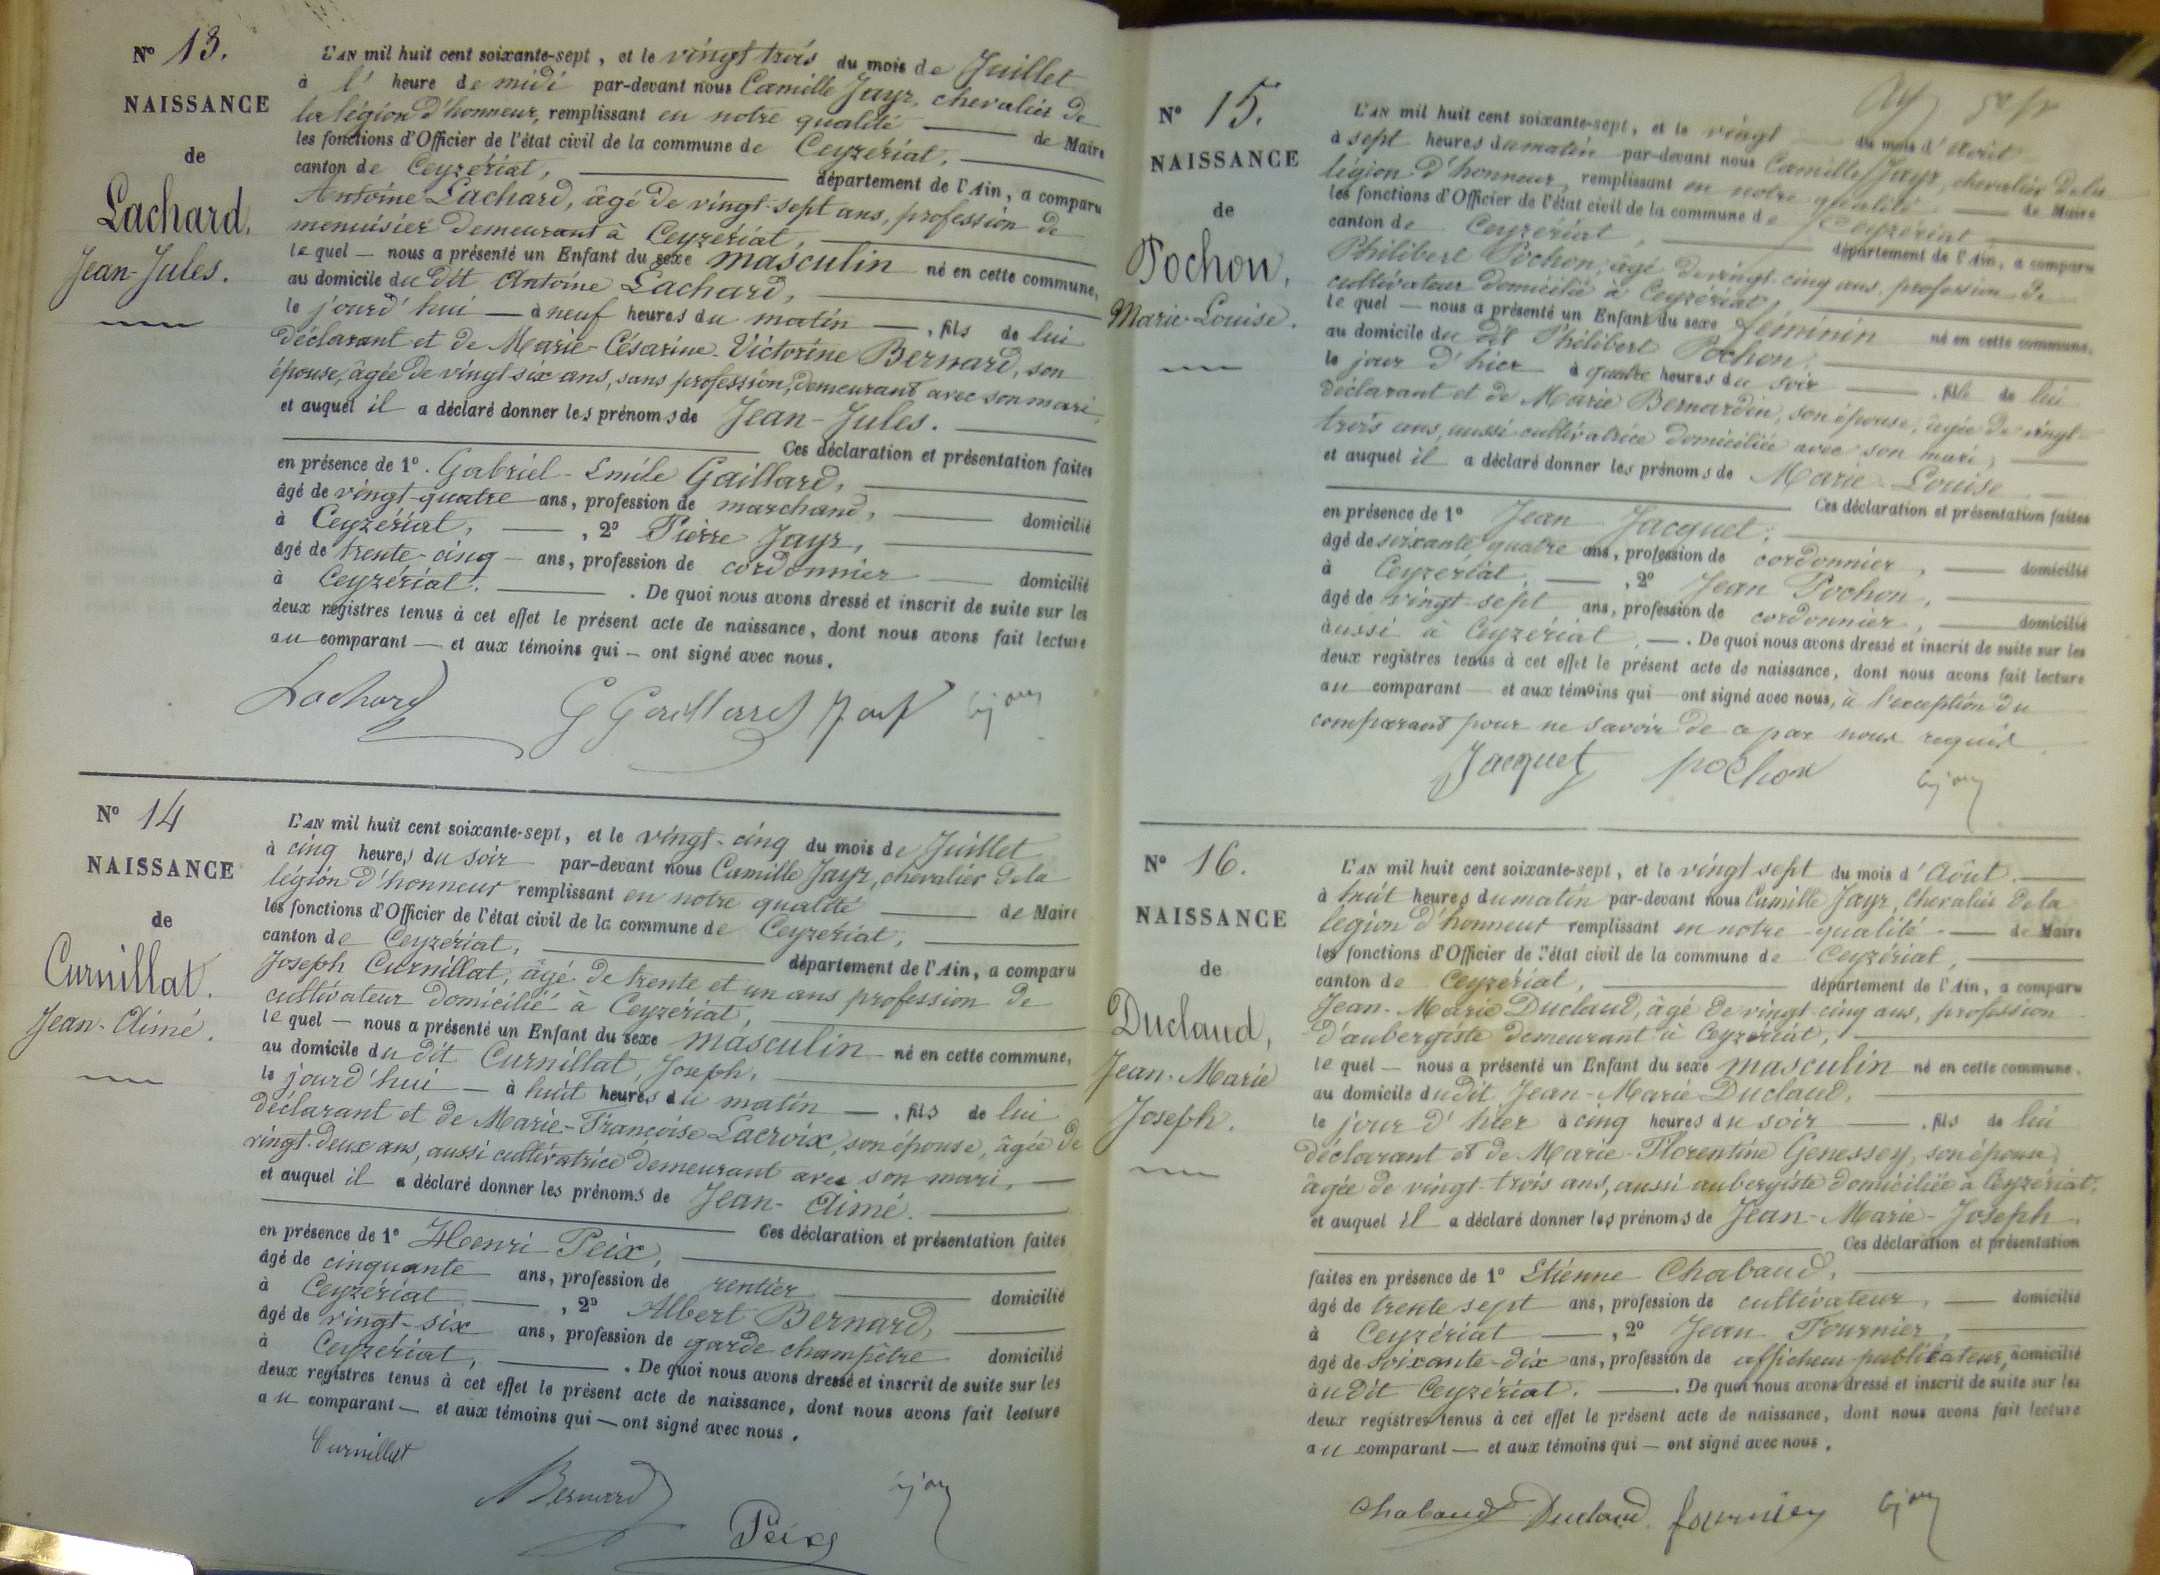 N° 13.
NAISSANCE
de
Lachard,
Jean-Jules.
L'AN mil huit cent soixante-sept, et le vingt trois du mois de Juillet
à l' heure de midi par-devant nous Camille Jayr, chevalier de
la légion d'honneur, remplissant en notre qualité de Maire
les fonctions d'Officier de l'état civil de la commune de Ceyzériat,
canton de Ceyzériat, département de l'Ain, a comparu
Antoine Lachard, âgé de vingt-sept ans, profession de
menuisier demeurant à Ceyzériat,
lequel — nous a présenté un Enfant du sexe masculin né en cette commune,
au domicile du dit Antoine Lachard,
le jourd'hui — à neuf heures du matin —, fils de lui
déclarant et de Marie-Césarine-Victorine Bernard, son
épouse, âgée de vingt six ans, sans profession, demeurant avec son mari,
et auquel il a déclaré donner les prénoms de Jean-Jules.
Ces déclaration et présentation faites
en présence de 1°. Gabriel-Emile Gaillard,
âgé de vingt-quatre ans, profession de marchand, domicilié
à Ceyzériat, —, 2° Pierre Jayr,
âgé de trente-cinq — ans, profession de cordonnier — domicilié
à Ceyzériat. — . De quoi nous avons dressé et inscrit de suite sur les
deux registres tenus à cet effet le présent acte de naissance, dont nous avons fait lecture
au comparant — et aux témoins qui — ont signé avec nous.
Lachard G Gaillard
N° 14
NAISSANCE
de
Curnillat.
Jean-Aimé.
L'AN mil huit cent soixante-sept, et le vingt-cinq du mois de Juillet
à cinq heures du soir par-devant nous Camille Jayr, chevalier de la
légion d'honneur remplissant en notre qualité de Maire
les fonctions d'Officier de l'état civil de la commune de Ceyzériat,
canton de Ceyzériat, département de l'Ain, a comparu
Joseph Curnillat, âgé de trente et un ans profession de
cultivateur domicilié à Ceyzériat,
lequel — nous a présenté un Enfant du sexe masculin né en cette commune,
au domicile du dit Curnillat, Joseph,
le jourd'hui — à huit heures du matin —, fils de lui
déclarant et de Marie-Françoise Lacroix, son épouse, âgée de
vingt-deux ans, aussi cultivatrice demeurant avec son mari,
et auquel il a déclaré donner les prénoms de Jean-Aimé.
Ces déclaration et présentation faites
en présence de 1° Henri Peix,
âgé de cinquante ans, profession de rentier domicilié
à Ceyzériat —, 2° Albert Bernard,
âgé de vingt-six ans, profession de garde champêtre domicilié
à Ceyzériat, — . De quoi nous avons dressé et inscrit de suite sur les
deux registres tenus à cet effet le présent acte de naissance, dont nous avons fait lecture
au comparant — et aux témoins qui — ont signé avec nous.
Curnillat
ABernard
Peix
N° 15.
NAISSANCE
de
Pochon,
Marie-Louise.
L'AN mil huit cent soixante-sept, et le vingt du mois d'Août
à sept heures du matin par-devant nous Camille Jayr, chevalier de la
légion d'honneur, remplissant en notre qualité de Maire
les fonctions d'Officier de l'état civil de la commune de Ceyzériat,
canton de Ceyzériat, département de l'Ain, a comparu
Philibert Pochon, âgé de vingt-cinq ans, profession de
cultivateur domicilié à Ceyzériat,
lequel — nous a présenté un Enfant du sexe féminin né en cette commune,
au domicile du dit Philibert Pochon,
le jour d'hier à quatre heures du soir —, fille de lui
déclarant et de Marie Bernardin, son épouse, âgée de vingt-
trois ans, aussi cultivatrice domiciliée avec son mari,
et auquel il a déclaré donner les prénoms de Marie-Louise
Ces déclaration et présentation faites
en présence de 1° Jean Jacquet,
âgé de soixante quatre ans, profession de cordonnier, — domicilié
à Ceyzériat, —, 2° Jean Pochon,
âgé de vingt-sept ans, profession de cordonnier, domicilié
aussi à Ceyzériat, — . De quoi nous avons dressé et inscrit de suite sur les
deux registres tenus à cet effet le présent acte de naissance, dont nous avons fait lecture
au comparant — et aux témoins qui — ont signé avec nous, à l'exception du
comparant pour ne savoir de ce par nous requis.
Jacquet pochon
N° 16.
NAISSANCE
de
Duclaud,
Jean-Marie
Joseph.
L'AN mil huit cent soixante-sept, et le vingt sept du mois d'Août.
à huit heures du matin par-devant nous Camille Jayr, chevalier de la
légion d'honneur remplissant en notre qualité — de Maire
les fonctions d'Officier de l'état civil de la commune de Ceyzériat,
canton de Ceyzériat, département de l'Ain, a comparu
Jean-Marie Duclaud, âgé de vingt cinq ans, profession
d'aubergiste demeurant à Ceyzériat,
lequel — nous a présenté un Enfant du sexe masculin né en cette commune,
au domicile du dit Jean-Marie Duclaud,
le jour d'hier à cinq heures du soir —, fils de lui
déclarant et de Marie-Florentine Genessey, son épouse,
âgée de vingt-trois ans, aussi aubergiste domiciliée à Ceyzériat,
et auquel il a déclaré donner les prénoms de Jean-Marie-Joseph.
Ces déclaration et présentation
faites en présence de 1° Etienne Chabaud,
âgé de trente sept ans, profession de cultivateur, — domicilié
à Ceyzériat —, 2° Jean Fournier,
âgé de soixante-dix ans, profession de afficheur publicateur, domicilié
audit Ceyzériat. — . De quoi nous avons dressé et inscrit de suite sur les
deux registres tenus à cet effet le présent acte de naissance, dont nous avons fait lecture
au comparant — et aux témoins qui — ont signé avec nous.
Chabaud Duclaud fournier